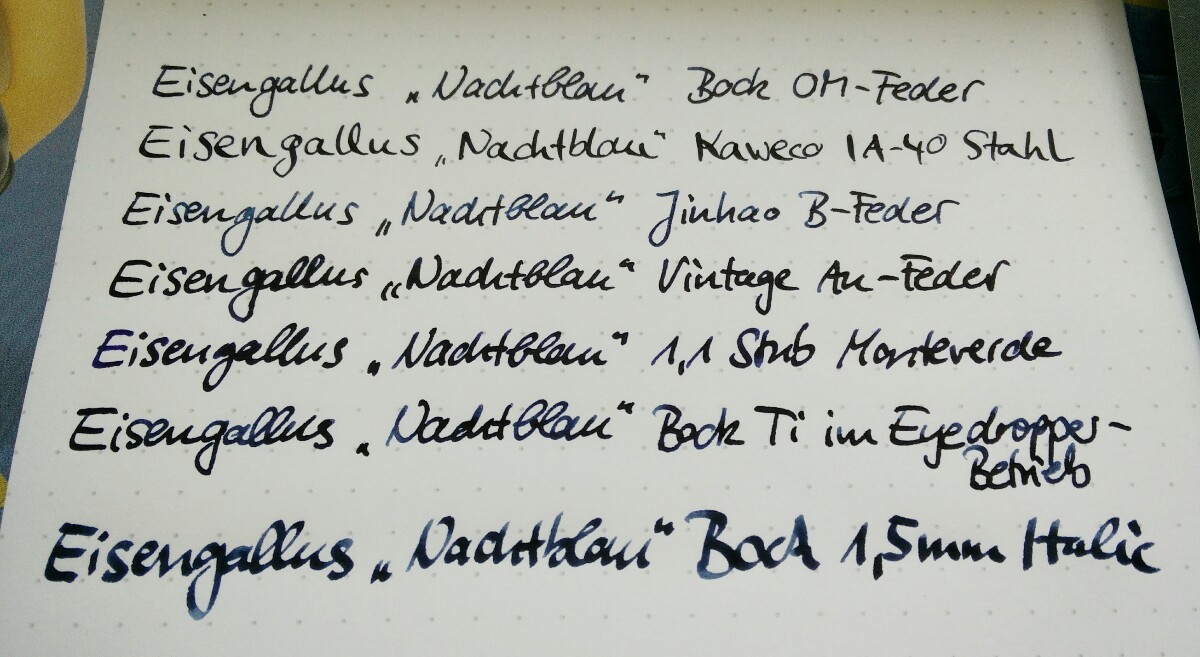 Eisengallus „Nachtblau“ Bock OM-Feder
Eisengallus „Nachtblau“ Kaweco 1A-40 Stahl
Eisengallus „Nachtblau“ Jinhao B-Feder
Eisengallus „Nachtblau“ Vintage Au-Feder
Eisengallus „Nachtblau“ 1,1 Stub Monteverde
Eisengallus „Nachtblau“ Bock Ti im Eyedropper-
Betrieb
Eisengallus „Nachtblau“ Bock 1,5mm Italic